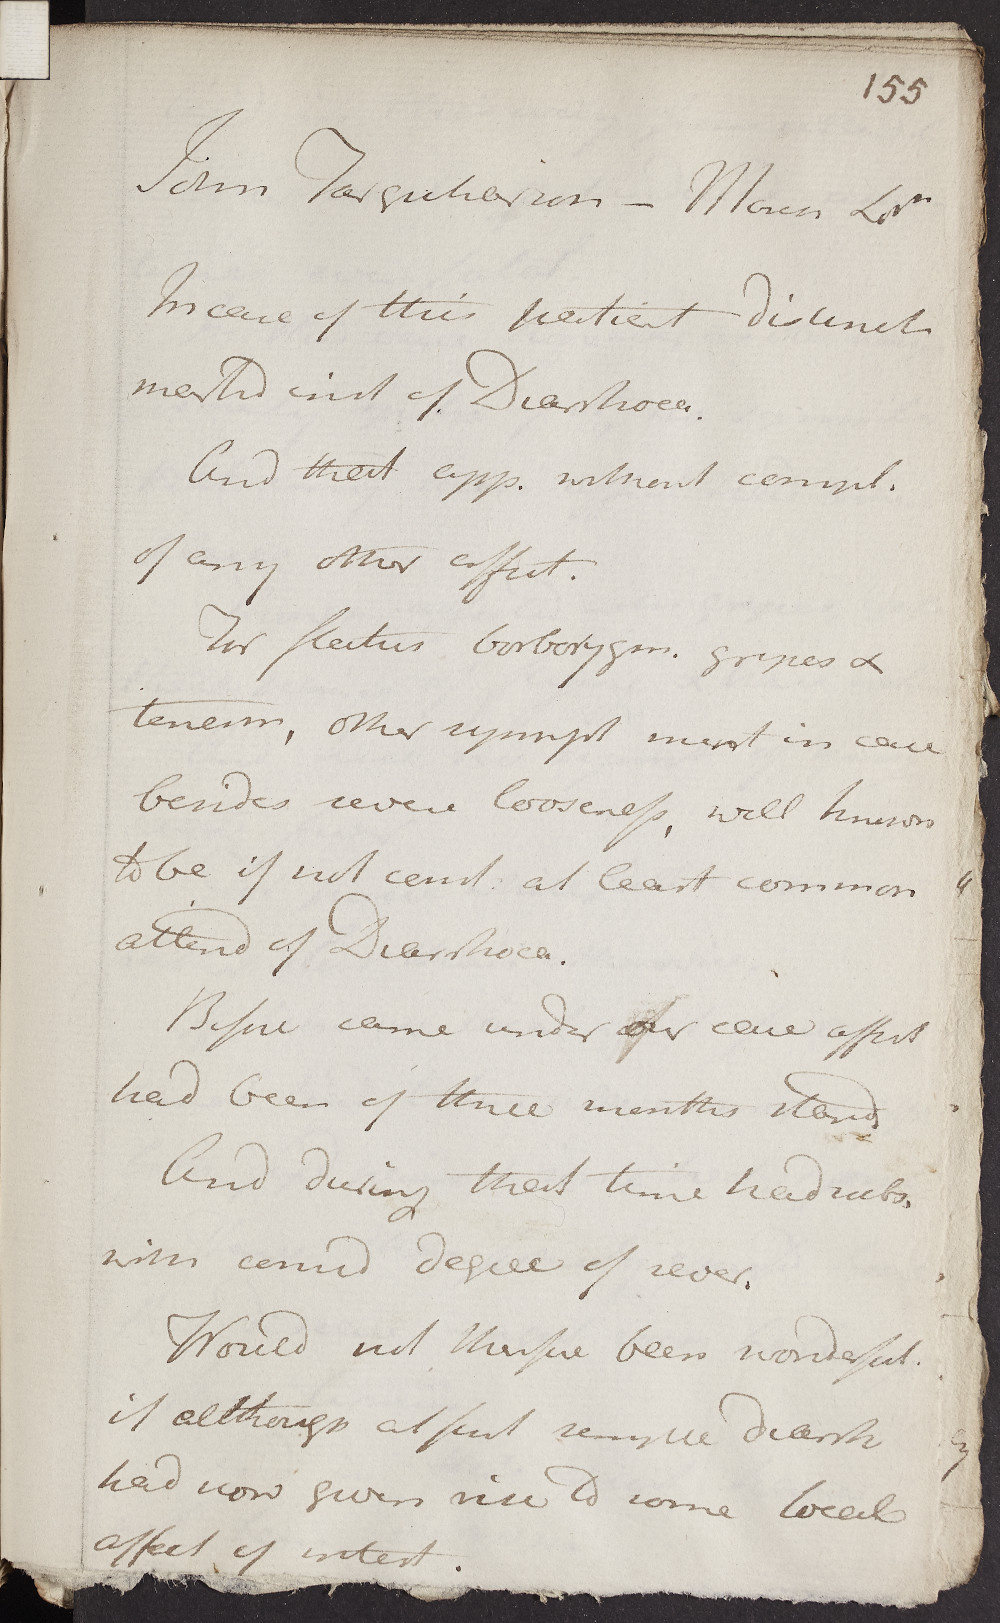 155
John Farquharson —
In case of this patient distinct
marked inst of Diarrhoea.
And that app. without compl.
of any other affect.
For flatus borborygm. gripes &
tenesm, other sympt ment in case
besides severe looseness, well known
to be if not const. at least common
attend of Diarrhoea.
Before came under our care affect
had been of three months stand
And during that time had subs.
with consid degree of sever.
Would not therefore been wonderful.
if although at first simple diarrh
had now given rise to some local
affect of intest.